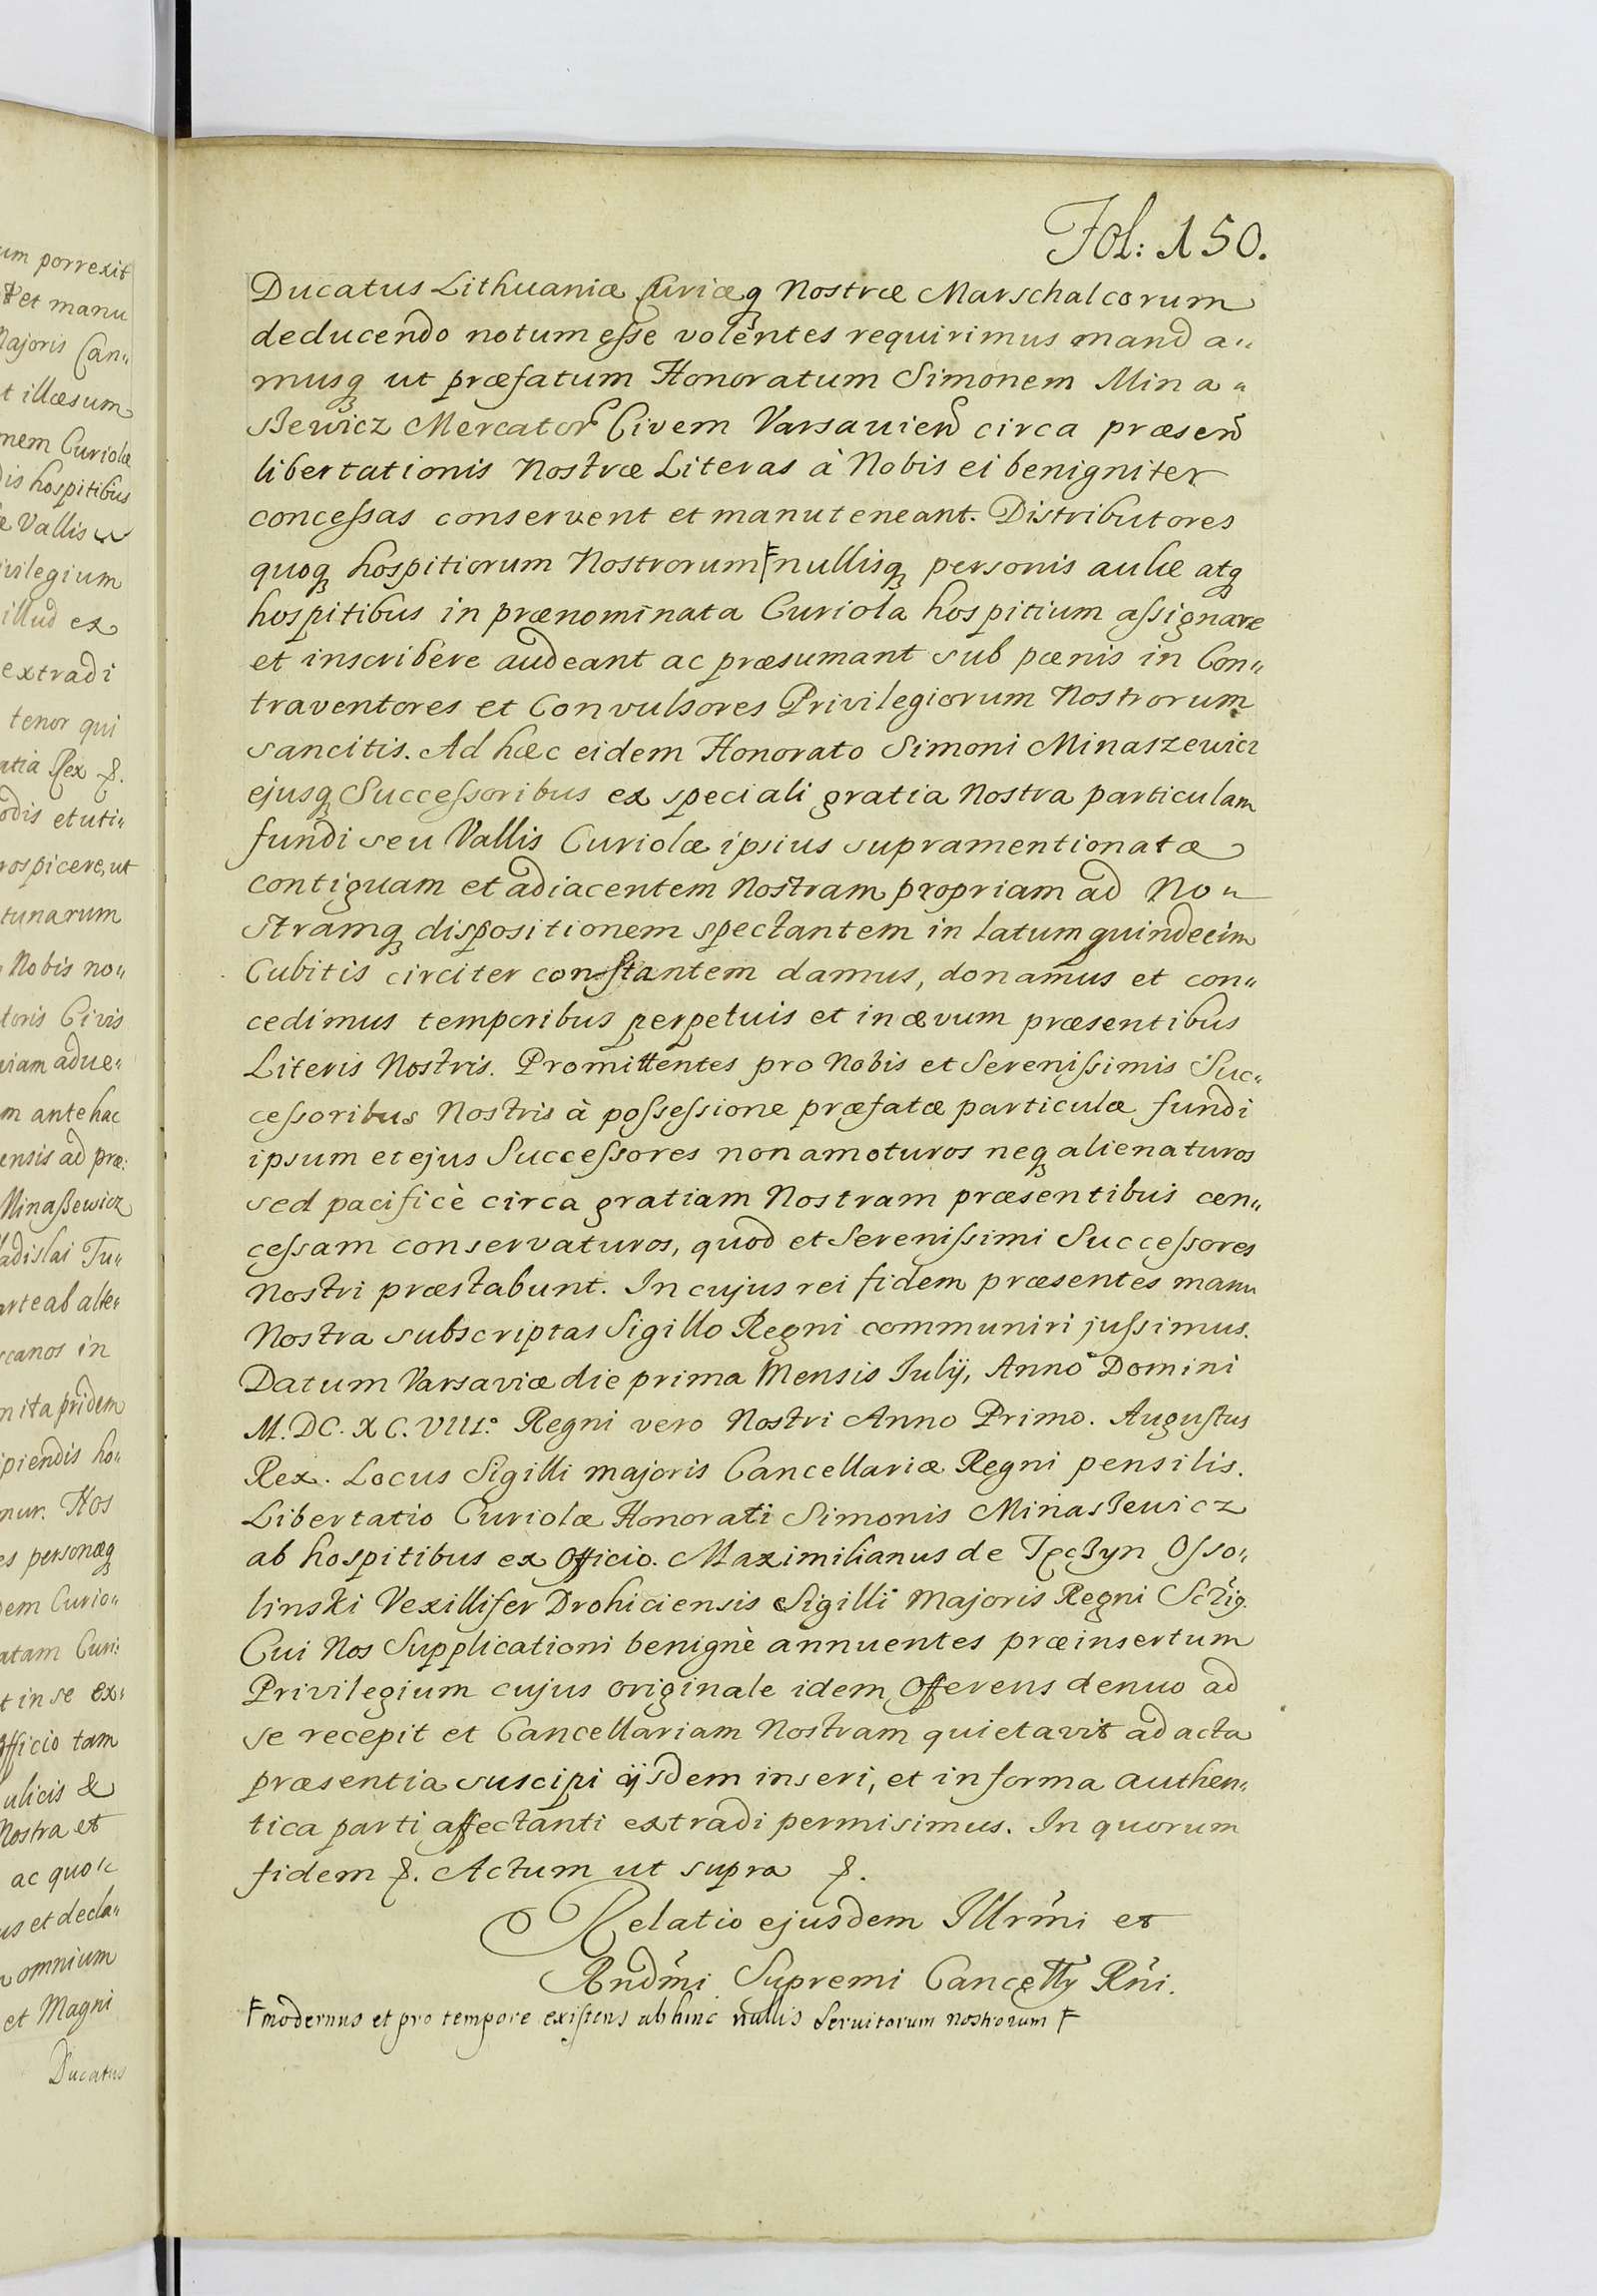 um porrexit
et manu
Majoris Can„
t illæsum
nem Curiolæ
is hospitibus
Vallis
ivilegium
illud ex
extradi
tenor qui
atia Rex &.
odis et uti„
rospicere, ut
tunarum
Nobis no„
toris Civis
viam adve„
m ante hac
ensis ad præ:
Minaßewicz
adislai Tu„
arte ab alte„
canos in
n ita pridem
ipiendis ho„
mur. Hos
es personæq
dem Curio„
atam Curi:
t in se ex„
officio tam
ulicis &
Nostra et
ac quo„
us et decla„
omnium
et Magni
Ducatus
Fol: 150.
Ducatus Lithuaniæ Curiæq Nostræ Marschalcorum
deducendo notum esse volentes requirimus manda„
musq ut præfatum Honoratum Simonem Mina„
ßewicz Mercator Civem Varsavien circa præsen
libertationis Nostræ Literas à Nobis ei benigniter
concessas conservent et manuteneant. Distributores
quoq hospitiorum Nostrorum Ꞙ nullisq personis aulæ atq
hospitibus in prænominata Curiola hospitium assignare
et inscribere audeant ac præsumant sub pœnis in Con„
traventores et Convulsores Privilegiorum Nostrorum
sancitis. Ad hæc eidem Honorato Simoni Minaszewicz
ejusq Successoribus ex speciali gratia Nostra particulam
fundi seu Vallis Curiolæ ipsius supramentionatæ
contiguam et adiacentem Nostram propriam ad No„
stramq dispositionem spectantem in latum quindecim
Cubitis circiter constantem damus, donamus et con„
cedimus temporibus perpetuis et in ævum præsentibus
Literis Nostris. Promittentes pro Nobis et Serenissimis Suc„
cessoribus Nostris à possessione præfatæ particulæ fundi
ipsum et ejus Successores non amoturos neq alienaturos
sed pacificè circa gratiam Nostram præsentibus con„
cessam conservaturos, quod et Serenissimi Successores
Nostri præstabunt. In cujus rei fidem præsentes manu
Nostra subscriptas Sigillo Regni communiri jussimus.
Datum Varsaviæ die prima Mensis Julij, Anno Domini
M.DC.XC.VIII.° Regni vero Nostri Anno Primo. Augustus
Rex. Locus Sigilli majoris Cancellariæ Regni pensilis.
Libertatio Curiolæ Honorati Simonis Minasßewicz
ab hospitibus ex Officio. Maximilianus de Tęczyn Osso„
linski Vexillifer Drohiciensis Sigilli Majoris Regni
Cui Nos Supplicationi benignè annuentes præinsertum
Privilegium cujus originale idem Offerens denuo ad
se recepit et Cancellariam Nostram quietavit ad acta
præsentia suscipi ijsdem inseri, et in forma authen„
tica parti affectanti extradi permisimus. In quorum
fidem &. Actum ut supra &.
Relatio ejusdem Illrmi et
Rndmi Supremi Cancellrij Rni.
Ꞙ modernus et pro tempore existens abhinc nullis Servitorum nostrorum Ꞙ